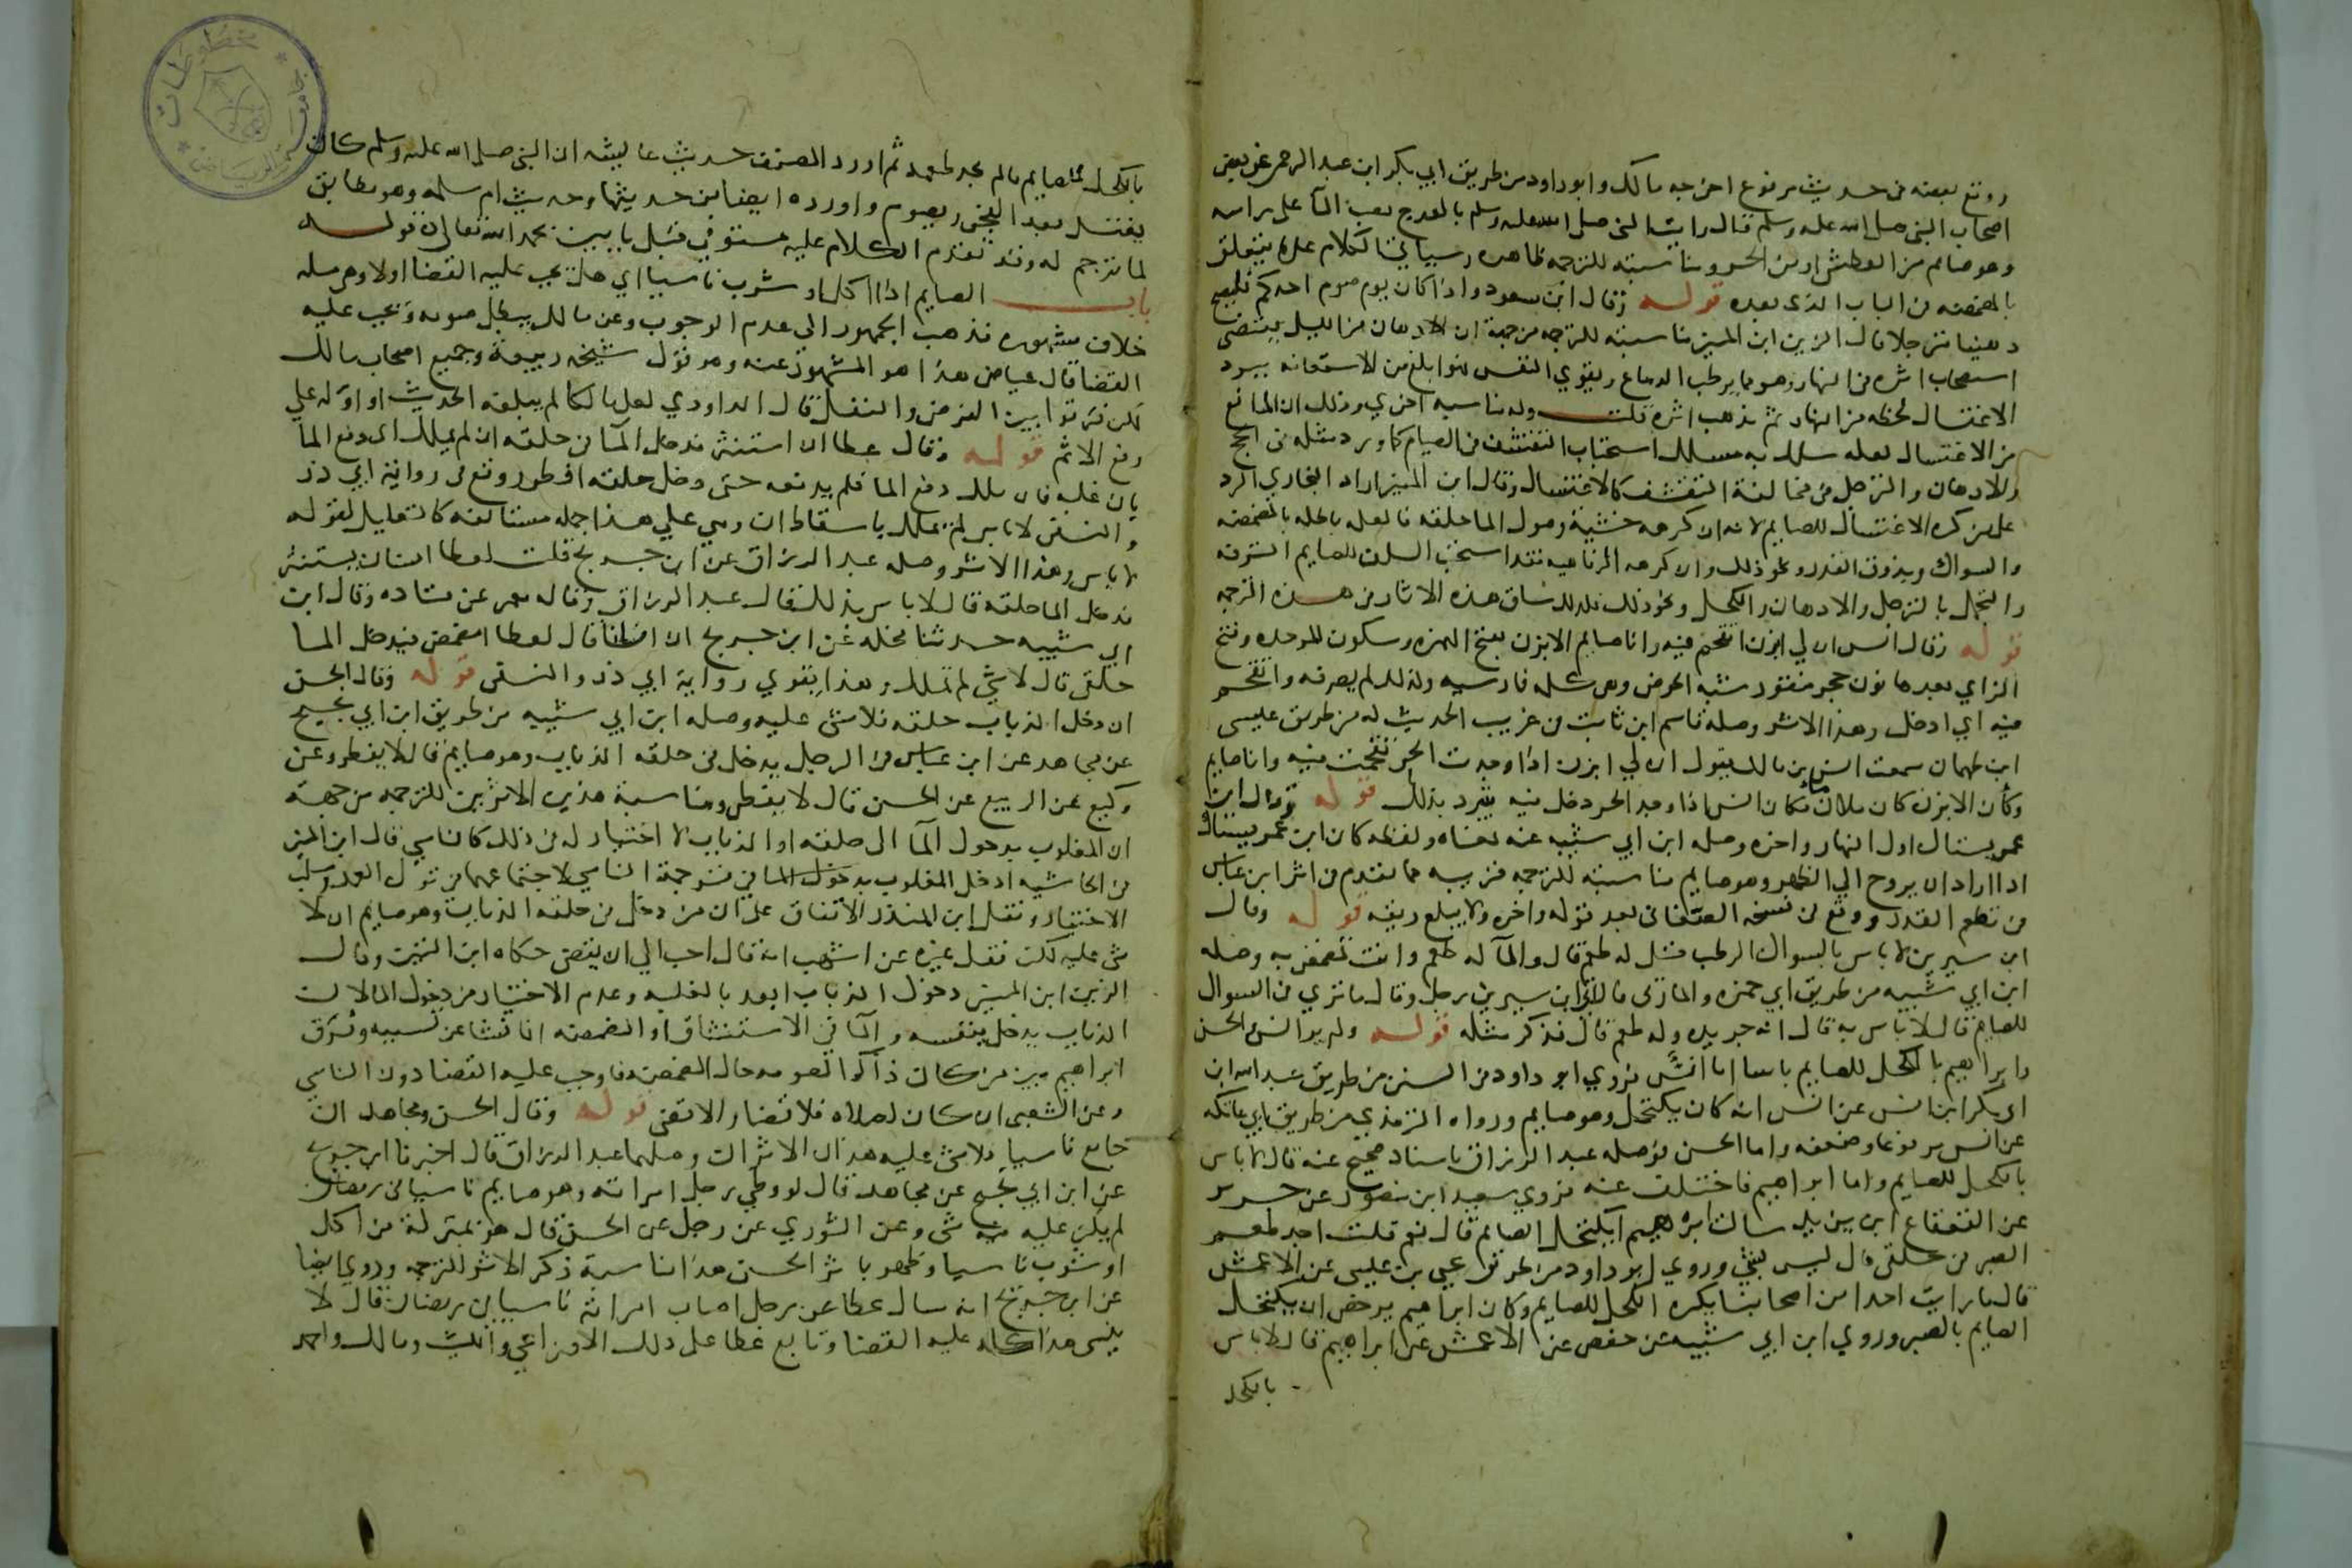 وقع بعضه في حديث مرفوع اخرجه مالك وابو داود من طريق ابي بكر ابن عبد الرحمن عن بعض
اصحاب النبي صلى الله عليه وسلم قال رايت النبي صلى الله عليه وسلم بالعرج يصب الماء على راسه
وهو صايم من العطش او من الحر ومناسبته للترجمه ظاهره وسياتي الكلام على ما يتعلق
بالمضمضه في الباب الذي بعده قوله وقال ابن مسعود اذا كان يوم صوم احدكم فليصبح
دهينا مترجلا قال الزين ابن المنير مناسبته للترجمه من جهة ان الادهان من الليل يقتضي
استصحاب اثره في النهار وهو مما يرطب الدماغ ويقوي النفس فهو ابلغ من الاستعانه ببرد
الاغتسال لحظه من النهار ثم يذهب اثره قلت وله مناسبه اخري وذلك ان المانع
من الاغتسال لعله سلك به مسلك استحباب التقشف في الصيام كما ورد مثله في الحج
والادهان والترجل في مخالفة التقشف كالاغتسال وقال ابن المنير اراد البخاري الرد
على من كره الاغتسال للصايم لانه ان كرهه خشية وصول الما حلقه فالعله باطله بالمضمضه
والسواك وبذوق القدر ونحو ذلك وان كرهه للرفاهيه فقد استحب السلف للصايم الترفه
والتجمل بالترجل والادهان والكحل ونحو ذلك فلذلك ساق هذه الاثار في هذه الترجمه
قوله وقال انس ان لي ابزن اتقحم فيه وانا صايم الابزن بفتح الهمزه وسكون الموحده وفتح
الزاي بعدها نون حجر منقور شبه الحوض وهي كلمه فارسيه ولذلك لم يصرفه واتقحم
فيه اي ادخل وهذا الاثر وصله قاسم ابن ثابت في غريب الحديث له من طريق عيسى
ابن طهمان سمعت انس بن مالك يقول ان لي ابزن اذا وجدت الحر تقحمت فيه وانا صايم
وكان الابزن كان ملان ماء فكان انس اذا وجد الحر دخل فيه يتبرد بذلك قوله وقال ابن
عمر يستاك اول النهار واخره وصله ابن ابي شيبه عنه بمعناه ولفظه كان ابن عمر يستاك
اذا اراد ان يروح الي الظهر وهو صايم مناسبته للترجمه قريبه مما تقدم في اثر ابن عباس
في تطعم القدر ووقع في نسخه الصغاني بعد قوله واخره ولا يبلع ريقه قوله وقال
ابن سيرين لا باس بالسواك الرطب قيل له طعم قال والماء له طعم وانت تمضمض به وصله
ابن ابي شيبه من طريق ابي حمزه المازني قال اتي ابن سيرين رجل وقال ما تري في السواك
للصايم قال لا باس به قال انه جريده وله طعم قال فذكر مثله قوله ولم ير انس والحسن
وابراهيم بالكحل للصايم باسا اما انس فروي ابو داود في السنن من طريق عبيد الله ابن
ابي بكر ابن انس عن انس انه كان يكتحل وهو صايم ورواه الترمذي من طريق ابي عاتكه
عن انس مرفوعا وضعفه واما الحسن فوصله عبد الرزاق باسناد صحيح عنه قال لا باس
بالكحل للصايم واما ابراهيم فاختلف عنه فروي سعيد ابن منصور عن جرير
عن القعقاع ابن يزيد سالت ابراهيم ايكتحل الصايم قال نعم قلت اجد طعم
الصبر في حلقي قال ليس بشي وروي ابو داود من طريق يحيي بن عيسى عن الاعمش
قال ما رايت احدا من اصحابنا يكره الكحل للصايم وكان ابراهيم يرخص ان يكتحل
الصايم بالصبر وروي ابن ابي شيبه عن حفص عن الاعمش عن ابراهيم قال لا باس
بالكحل
بالكحل للصايم ما لم يجد طعمه ثم اورد المصنف حديث عايشه ان النبي صلى الله عليه وسلم كان
يغتسل بعد الفجر ويصوم واورده ايضا من حديثها وحديث ام سلمه وهو مطابق
لما ترجم له وقد تقدم الكلام عليه مستوفي قبل بابين بحمد الله تعالى قوله
باب الصايم اذا اكل او شرب ناسيا اي هل يجب عليه القضا اولا وهي مسله
خلاف مشهوره فذهب الجمهور الى عدم الوجوب وعن مالك يبطل صومه ويجب عليه
القضا قال عياض هذا هو المشهور عنه وهو قول شيخه ربيعة وجميع اصحاب مالك
لكن فرقوا بين الفرض والنفل قال الداودي لعل مالكا لم يبلغه الحديث او اوله علي
رفع الاثم قوله وقال عطا ان استنثر فدخل الما في حلقه ان لم يملك اي دفع الما
بان غلبه فان ملك دفع الما فلم يدفعه حتى دخل حلقه افطر ووقع في رواية ابي ذر
والنسفي لا باس لم يملك باسقاط ان وهي علي هذا جمله مستانفه كالتعليل لقوله
لا باس وهذا الاثر وصله عبد الرزاق عن ابن جريج قلت لعطا انسان يستنثر
فدخل الما حلقه قال لا باس بذلك قال عبد الرزاق وقاله معمر عن قتاده وقال ابن
ابي شيبه حدثنا مخلد عن ابن جريج ان انسانا قال لعطا امضمض فيدخل الما
حلقي قال لا شي لم تملك وهذا يقوي رواية ابي ذر والنسفي قوله وقال الحسن
ان دخل الذباب حلقه فلا شي عليه وصله ابن ابي شيبه من طريق ابن ابي نجيح
عن مجاهد عن ابن عباس في الرجل يدخل في حلقه الذباب وهو صايم قال لا يفطر وعن
وكيع عن الربيع عن الحسن قال لا يفطر ومناسبة هذين الاثرين للترجمه من جهة
ان المغلوب بدخول الما الى حلقه او الذباب لا اختيار له في ذلك كالناسي قال ابن المنير
في الحاشيه ادخل المغلوب بدخول الما في ترجمة الناسي لاجتماعهما في ترك العمد وسلب
الاختيار ونقل ابن المنذر الاتفاق على ان من دخل في حلقه الذباب وهو صايم ان لا
شي عليه لكن نقل غيره عن اشهب انه قال احب الي ان يقضي حكاه ابن التين وقال
الزين ابن المنير دخول الذباب اقعد بالغلبه وعدم الاختيار من دخول الما لان
الذباب يدخل بنفسه والما في الاستنشاق او المضمضه انما نشا عن تسببه وفرق
ابراهيم بين من كان ذاكرا لصومه حال المضمضه فاوجب عليه القضا دون الناسي
وعن الشعبي ان كان لصلاة فلا قضا والا قضى قوله وقال الحسن ومجاهد ان
جامع ناسيا فلا شي عليه هذان الاثران وصلهما عبد الرزاق قال اخبرنا ابن جريج
عن ابن ابي نجيح عن مجاهد قال لو وطي رجل امراته وهو صايم ناسيا في رمضان
لم يكن عليه فيه شي وعن الثوري عن رجل عن الحسن قال هو بمنزلة من اكل
او شرب ناسيا وظهر باثر الحسن هذا مناسبة ذكر الاثر للترجمه وروي ايضا
عن ابن جريج انه سال عطا عن رجل اصاب امراته ناسيا في رمضان قال لا
ينسى هذا كله عليه القضا وتابع عطا على ذلك الاوزاعي والليث ومالك واحمد